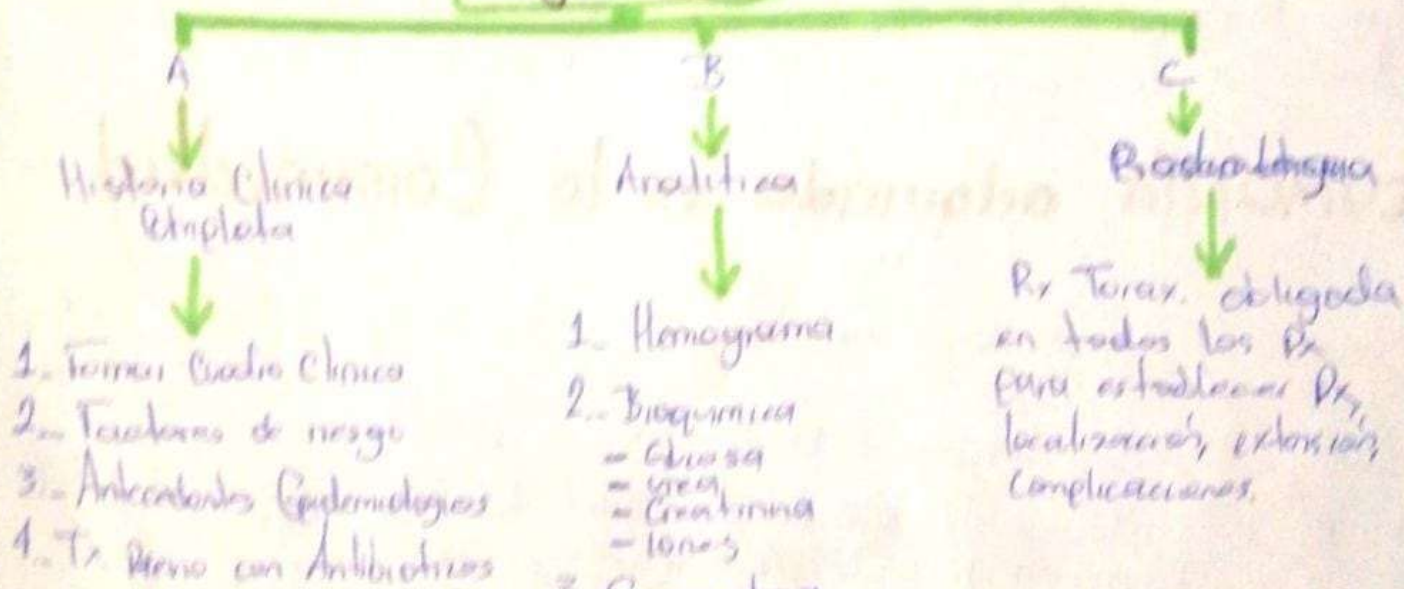 A
Historia Clinica
Completa
1. Tomar Cuadro Clinico
2. Factores de riesgo
3. Antecedentes Epidemiologicos
4. Tx Previo con Antibioticos
B
Analitica
1. Hemograma
2. Bioquimica
- Glucosa
- Urea
- Creatinina
- Iones
C
Rx Torax. obligada
en todos los Px
para establecer Dx,
localización, extensión,
complicaciones.